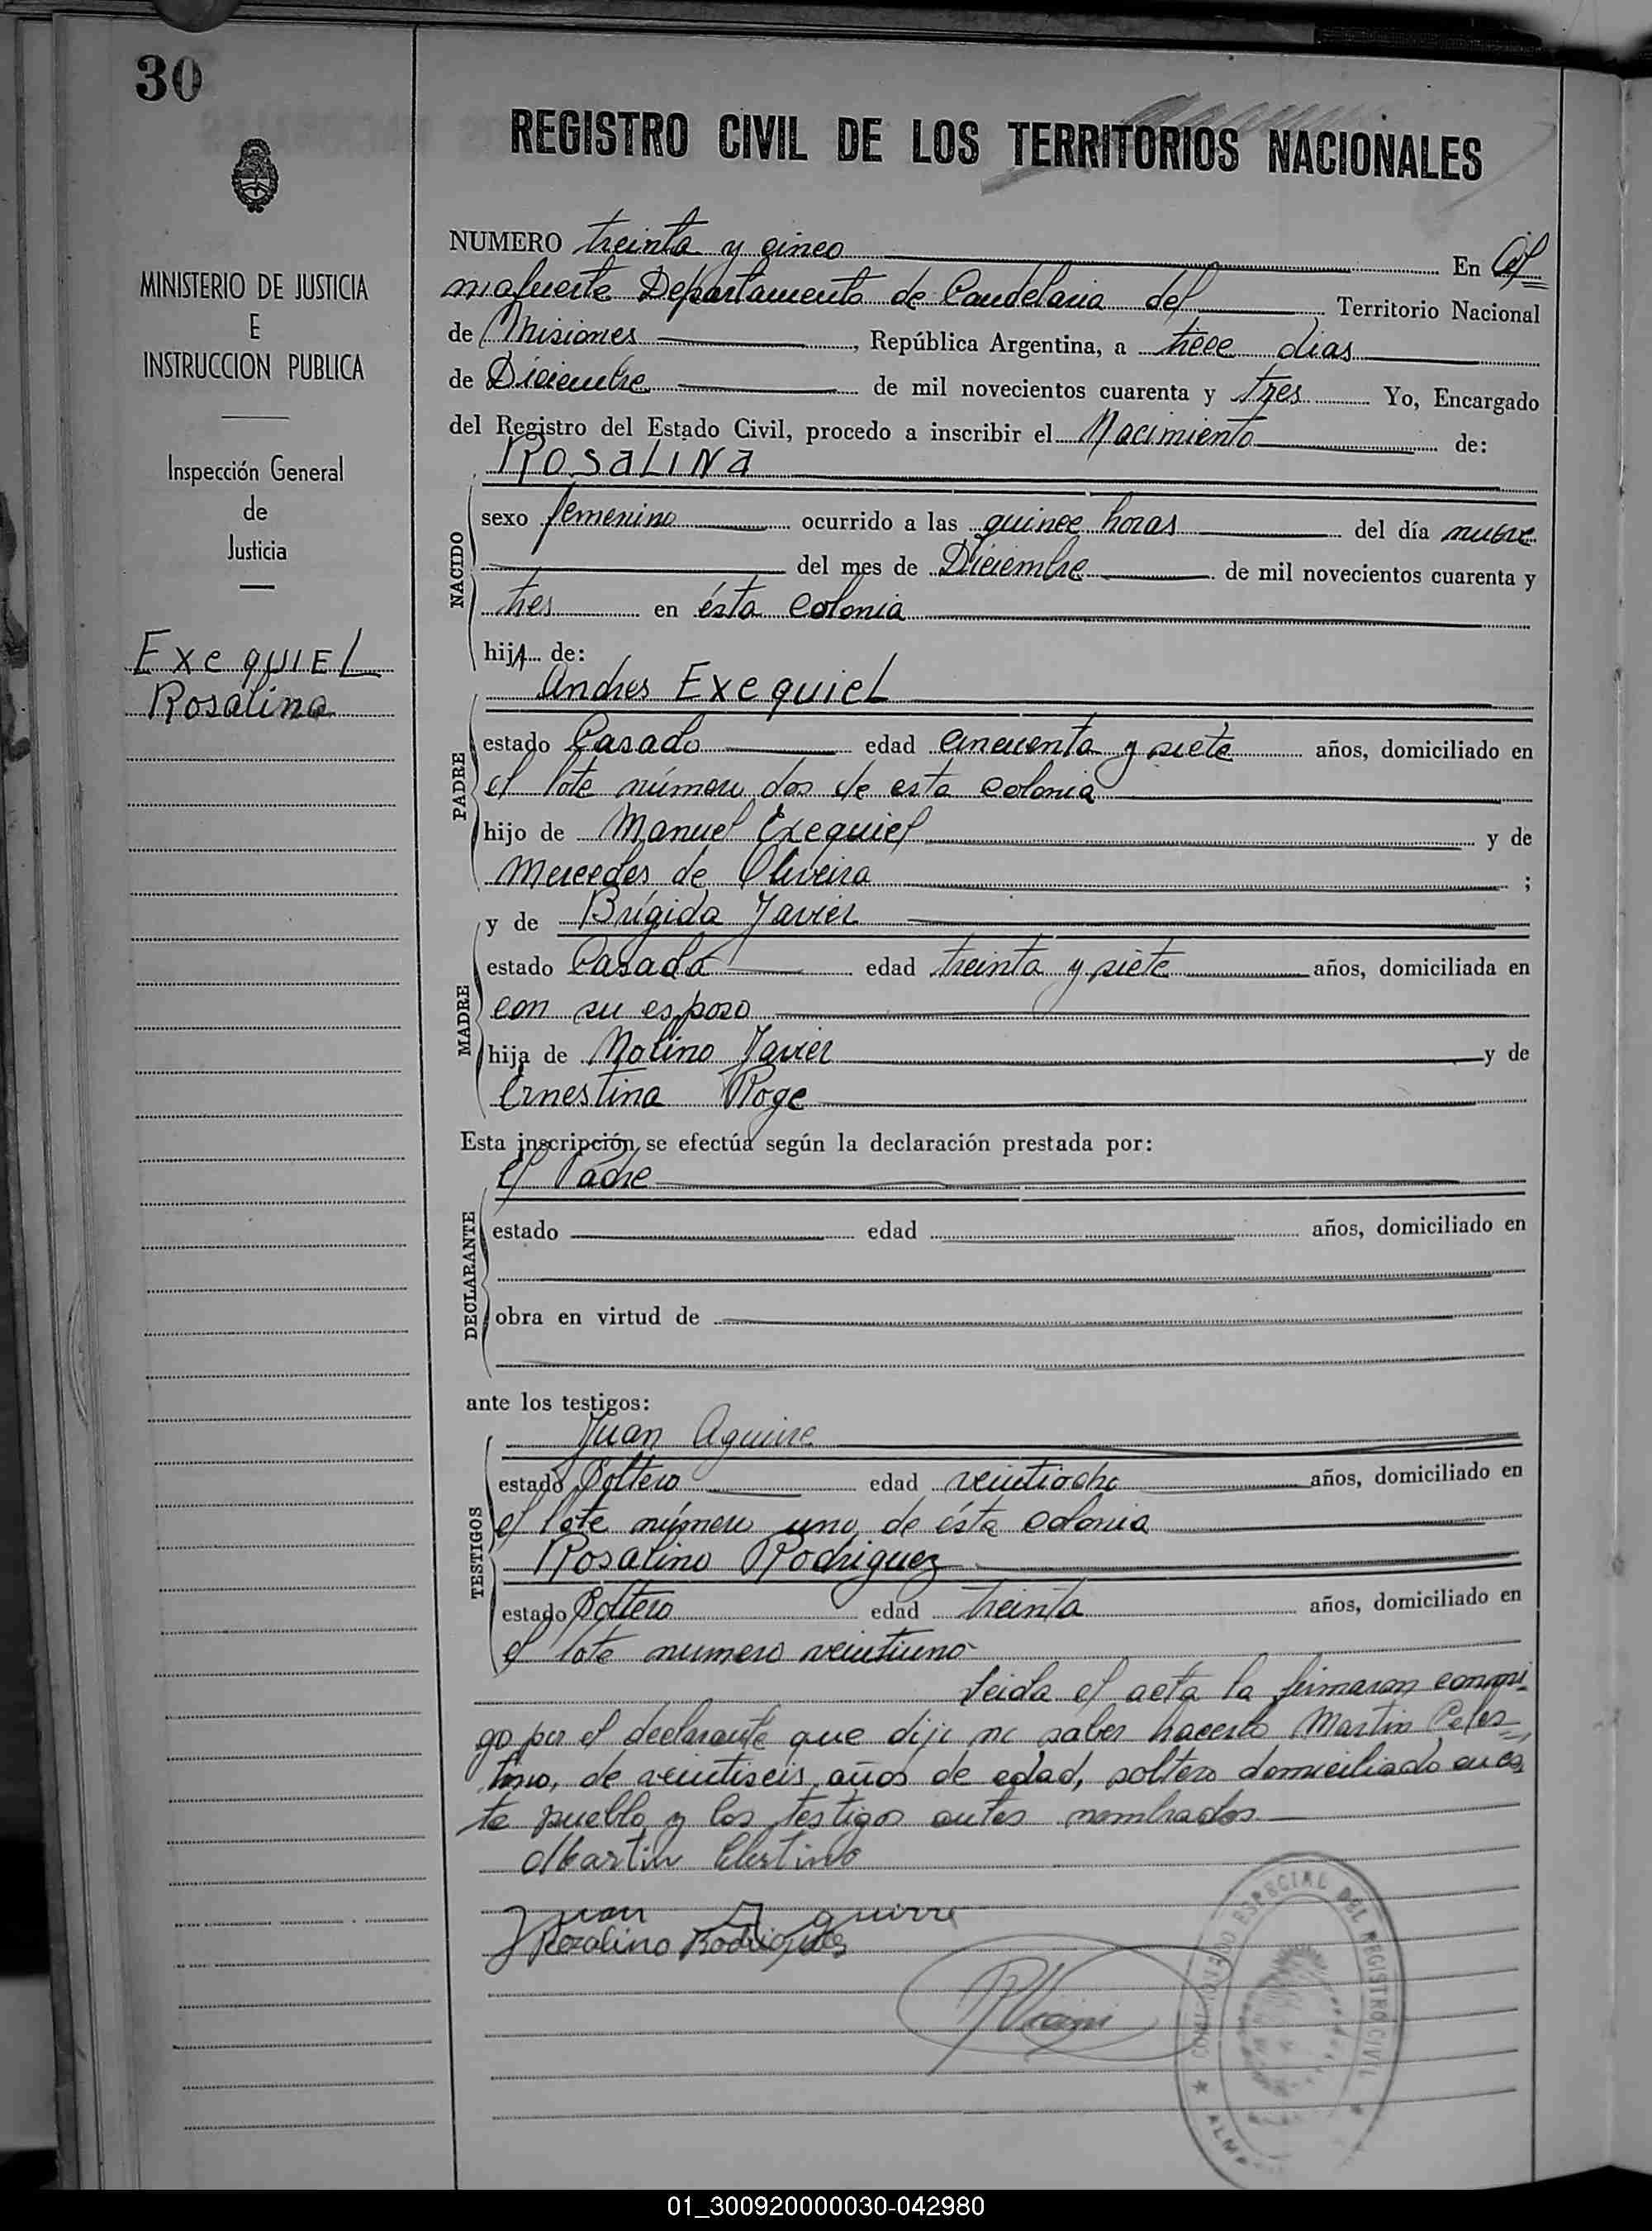 30
REGISTRO CIVIL DE LOS TERRITORIOS NACIONALES
MINISTERIO DE JUSTICIA
E
INSTRUCCION PUBLICA
Inspección General
de
Justicia
Exequiel
Rosalina
NUMERO treinta y cinco En Al=
mafuerte Departamento de Candelaria del Territorio Nacional
de Misiones, República Argentina, a trece dias
de Diciembre de mil novecientos cuarenta y tres Yo, Encargado
del Registro del Estado Civil, procedo a inscribir el Nacimiento de:
ROSALINA
NACIDO
sexo femenino ocurrido a las quince horas del día nueve
del mes de Diciembre de mil novecientos cuarenta y
tres en ésta colonia
hija de:
Andres Exequiel
PADRE
estado Casado edad cincuenta y siete años, domiciliado en
el lote número dos de esta colonia
hijo de Manuel Exequiel y de
Mercedes de Oliveira ;
y de Brígida Javier
MADRE
estado Casada edad treinta y siete años, domiciliada en
con su esposo
hija de Nolino Javier y de
Ernestina Roge
Esta inscripción, se efectúa según la declaración prestada por:
el Padre
DECLARANTE
estado edad años, domiciliado en
obra en virtud de
ante los testigos:
Juan Aguirre
TESTIGOS
estado Soltero edad veintiocho años, domiciliado en
el lote número uno de ésta colonia
Rosalino Rodriguez
estado Soltero edad treinta años, domiciliado en
el lote numero veintiuno
Leida el acta la firmaron conmi=
go por el declarante que dijo no saber hacerlo Martin Celes=
tino, de veintiseis años de edad, soltero domiciliado en es=
te pueblo y los testigos antes nombrados
Martin Celestino
Juan Aguirre
Rozalino Rodrigues
ESPECIAL DEL REGISTRO CIVIL
01_300920000030-042980